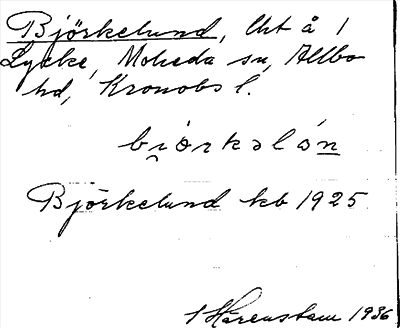 Björkelund, lht å 1
Lycke, Moheda sn, Allbo
hd, Kronobs l.
björkəló̱n̲
Björkelund kb 1925
Hårenstam 1936